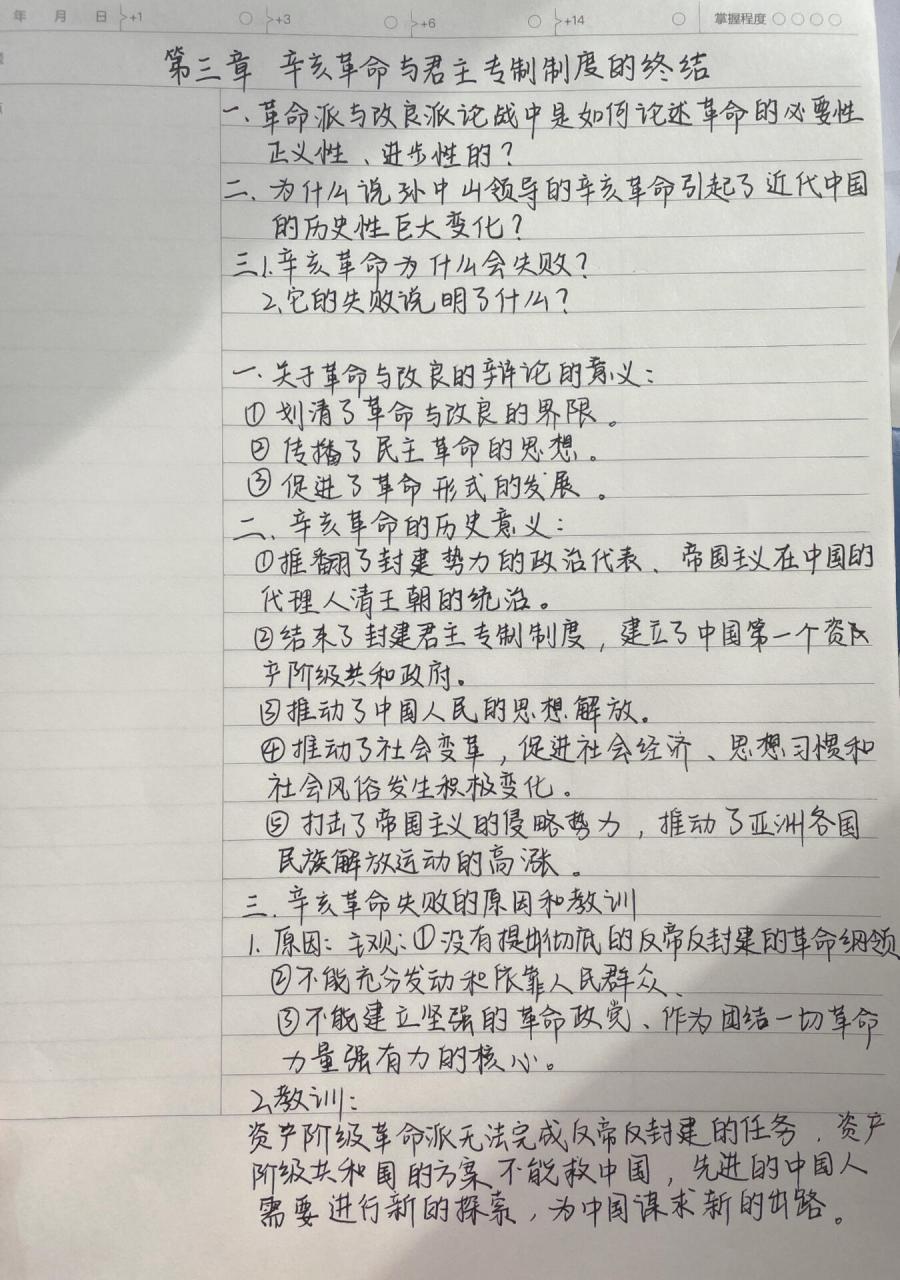 年 月 日 +1 +3 +6 +14 掌握程度
第三章 辛亥革命与君主专制制度的终结
一、革命派与改良派论战中是如何论述革命的必要性
正义性、进步性的？
二、为什么说孙中山领导的辛亥革命引起了近代中国
的历史性巨大变化？
三1.辛亥革命为什么会失败？
2、它的失败说明了什么？
一、关于革命与改良的辩论的意义：
①划清了革命与改良的界限。
②传播了民主革命的思想。
③促进了革命形式的发展。
二、辛亥革命的历史意义：
①推翻了封建势力的政治代表、帝国主义在中国的
代理人清王朝的统治。
②结束了封建君主专制制度，建立了中国第一个资
产阶级共和政府。
③推动了中国人民的思想解放。
④推动了社会变革，促进社会经济、思想习惯和
社会风俗发生积极变化。
⑤打击了帝国主义的侵略势力，推动了亚洲各国
民族解放运动的高涨。
三、辛亥革命失败的原因和教训
1.原因：主观：①没有提出彻底的反帝反封建的革命纲领
②不能充分发动和依靠人民群众、
③不能建立坚强的革命政党、作为团结一切革命
力量强有力的核心。
2、教训：
资产阶级革命派无法完成反帝反封建的任务，资产
阶级共和国的方案不能救中国，先进的中国人
需要进行新的探索，为中国谋求新的出路。